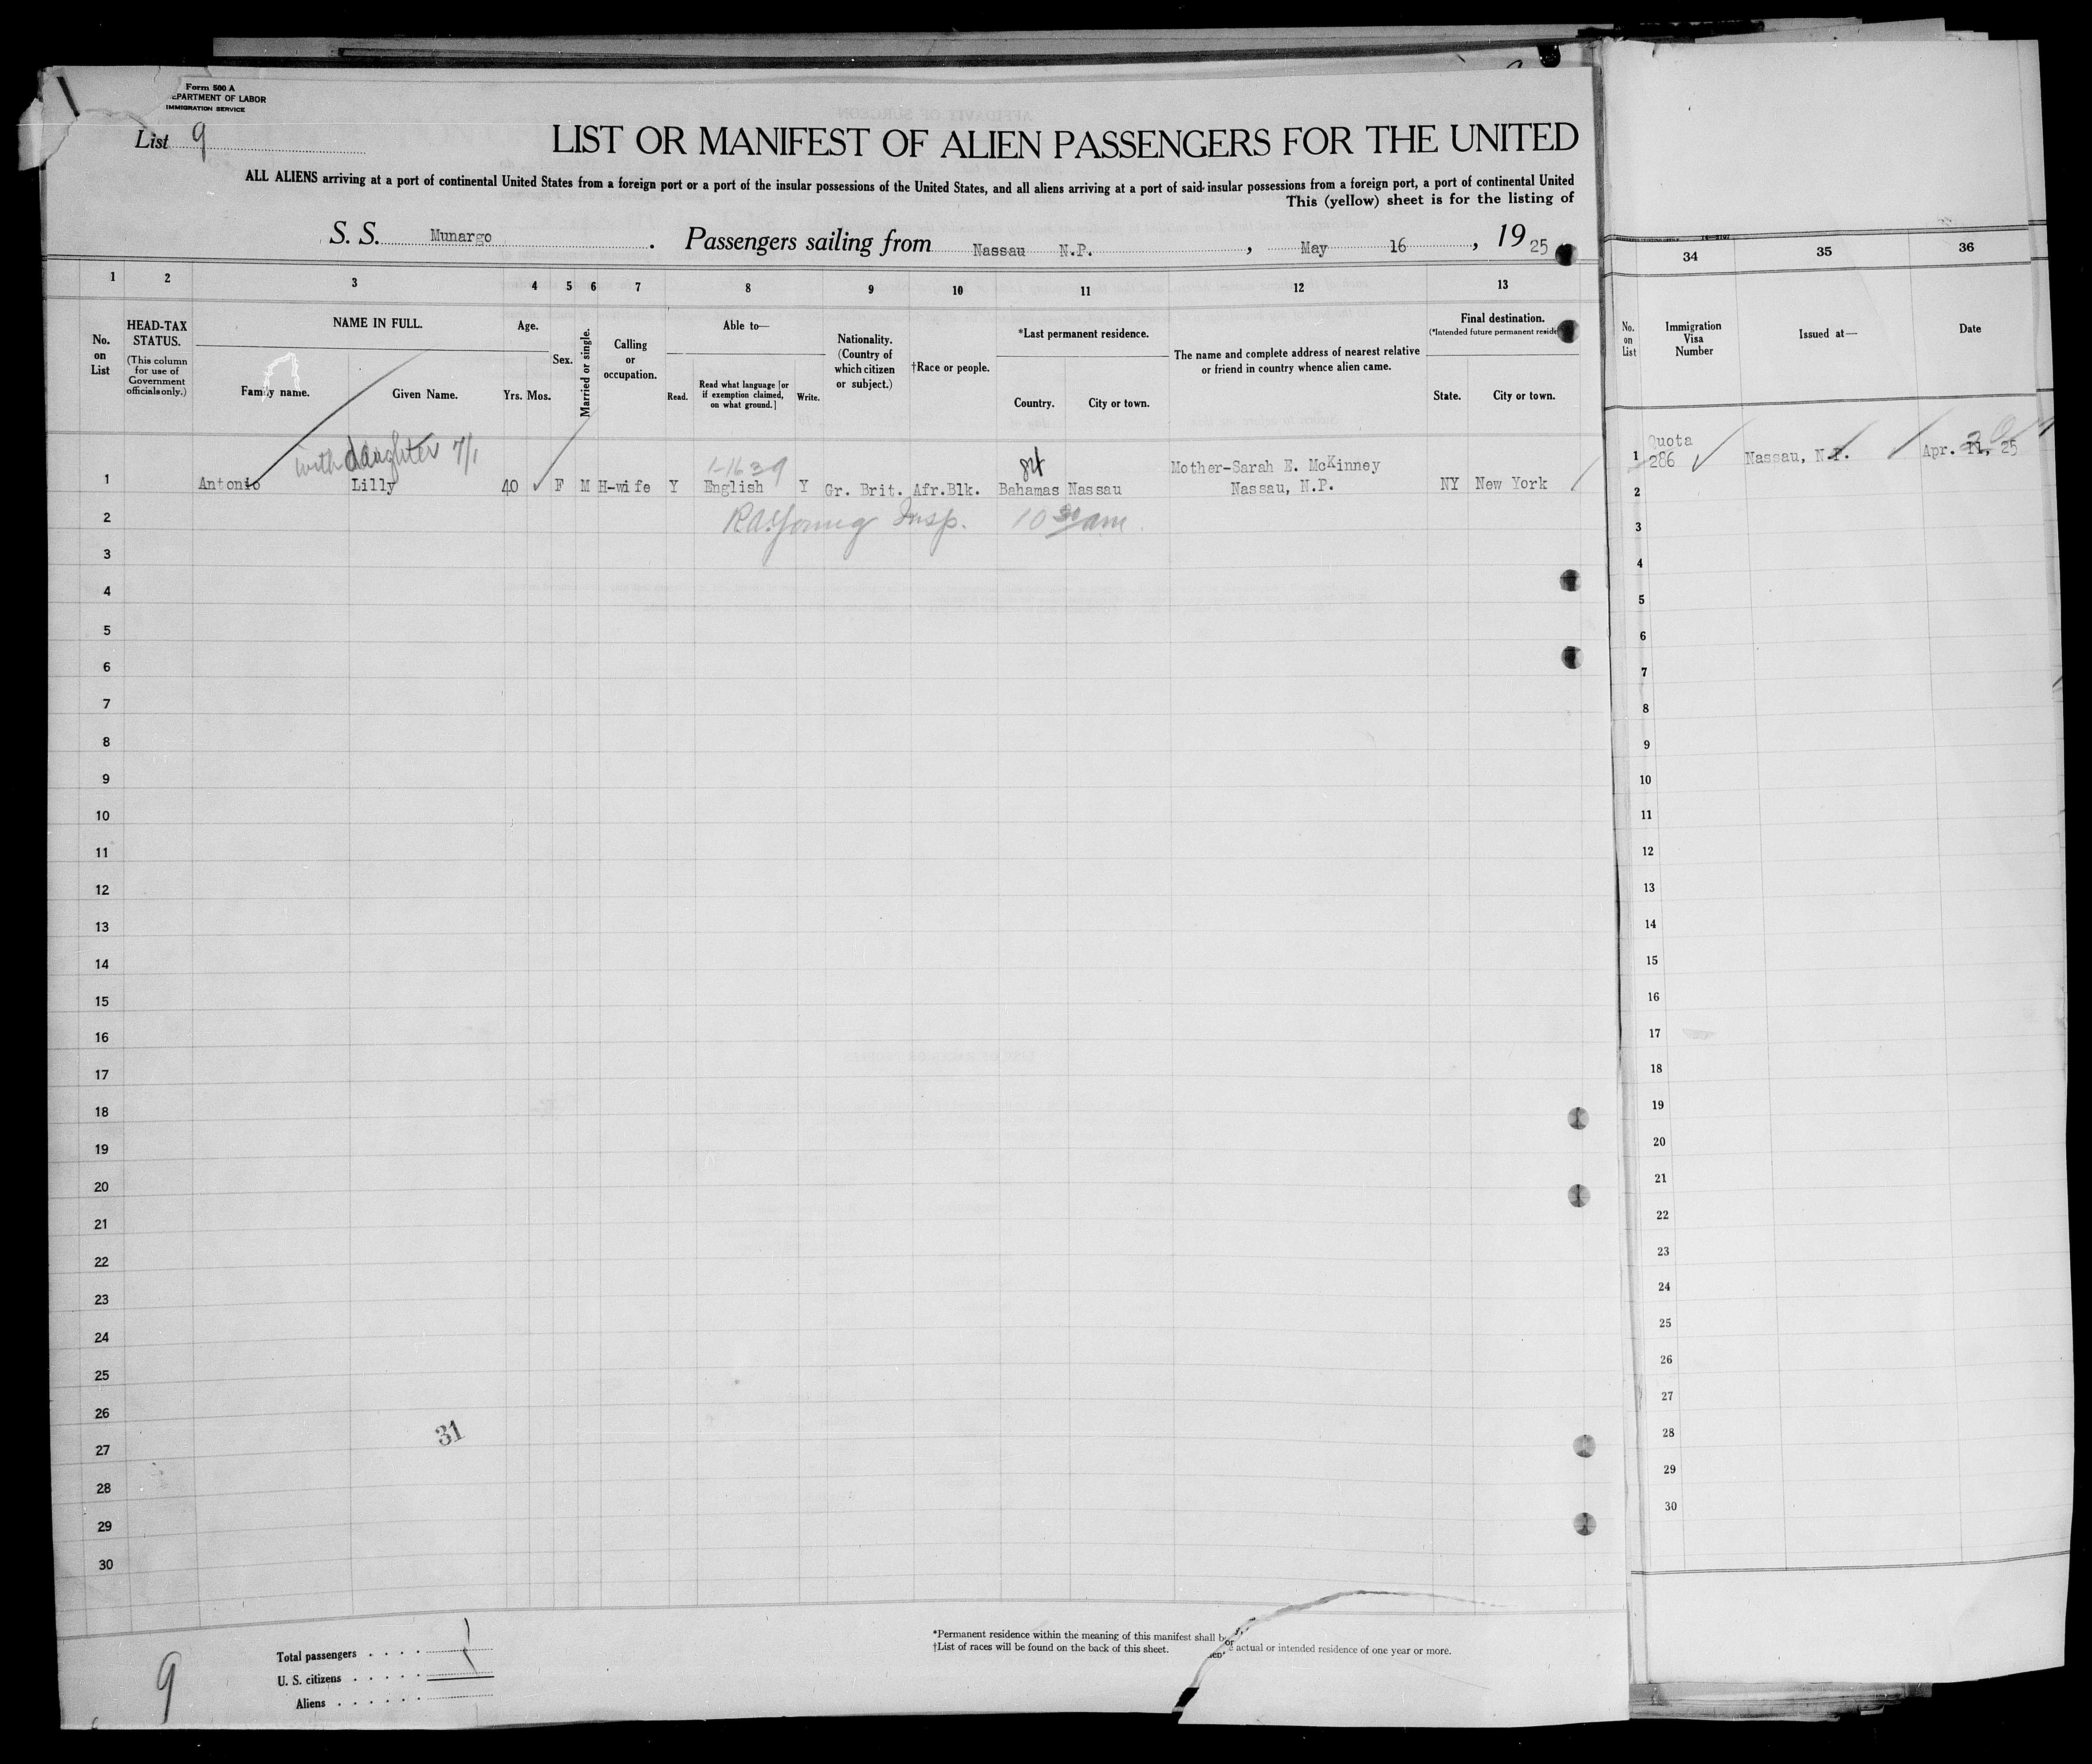 Form 500 A
DEPARTMENT OF LABOR
IMMIGRATION SERVICE
List 9
LIST OR MANIFEST OF ALIEN PASSENGERS FOR THE UNITED
ALL ALIENS arriving at a port of continental United States from a foreign port or a port of the insular possessions of the United States, and all aliens arriving at a port of said insular possessions from a foreign port, a port of continental United
This (yellow) sheet is for the listing of
S. S. Munargo. Passengers sailing from Nassau N.P., May 16, 1925
1 2 3 4 5 6 7 8 9 10 11 12 13
No. on List
HEAD-TAX STATUS.
(This column for use of Government officials only.)
NAME IN FULL.
Family name. Given Name.
Age.
Yrs. Mos.
Sex.
Married or single.
Calling or occupation.
Able to—
Read. Read what language [or if exemption claimed, on what ground.] Write.
Nationality. (Country of which citizen or subject.)
†Race or people.
*Last permanent residence.
Country. City or town.
The name and complete address of nearest relative or friend in country whence alien came.
Final destination.
(*Intended future permanent reside
State. City or town.
with daughter 7/1
1-1639
Mother-Sarah E. McKinney
1 Antonio Lilly 40 F M H-wife Y English Y Gr. Brit. Afr.Blk. Bahamas Nassau Nassau, N.P. NY New York
2 Insp. 10 30 am.
3
4
5
6
7
8
9
10
11
12
13
14
15
16
17
18
19
20
21
22
23
24
25
26
31
27
28
29
30
Total passengers . . . . 1
U. S. citizens . . . . . .
Aliens . . . . . .
9
*Permanent residence within the meaning of this manifest shall be actual or intended residence of one year or more.
†List of races will be found on the back of this sheet.
34 35 36
No. on List
Immigration Visa Number
Issued at—
Date
Quota
1 286 Nassau, N.P. Apr. 11, 25
2
3
4
5
6
7
8
9
10
11
12
13
14
15
16
17
18
19
20
21
22
23
24
25
26
27
28
29
30